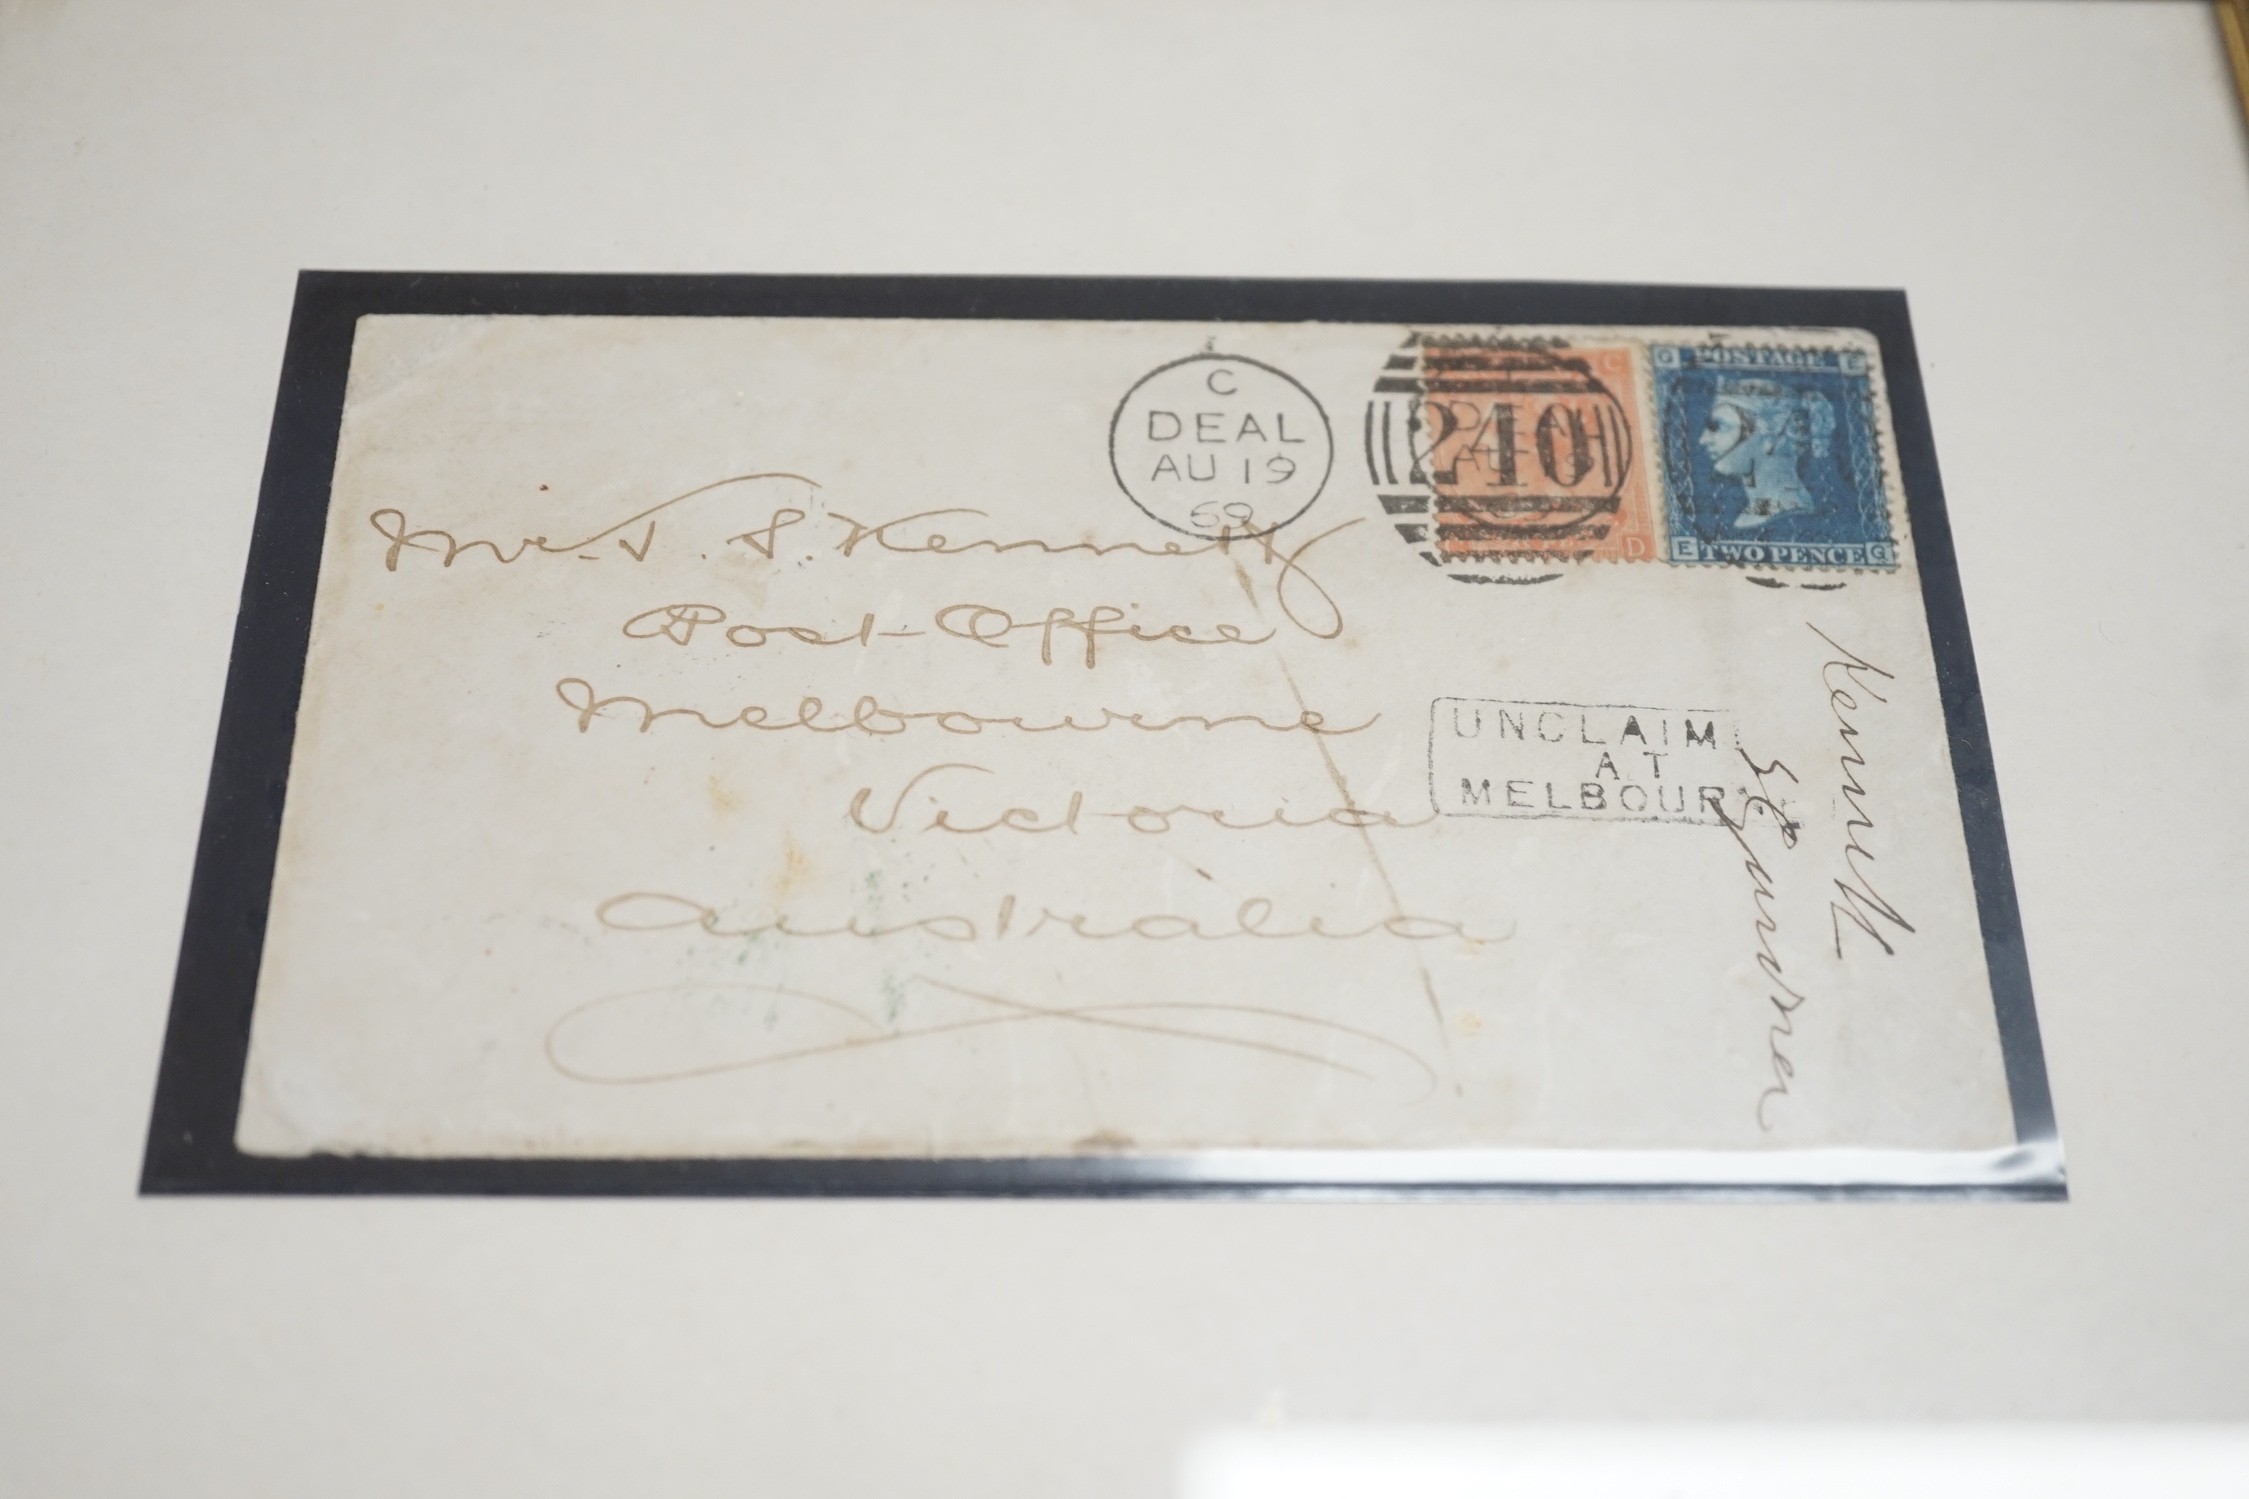 C
DEAL
AU 19
69
240
C
D
Q E
POSTAGE
TWO PENCE
E G
Mr. T. S. Kennett
Post-Office
Melbourne
Victoria
Australia
UNCLAIM
AT
MELBOURN
Kennett